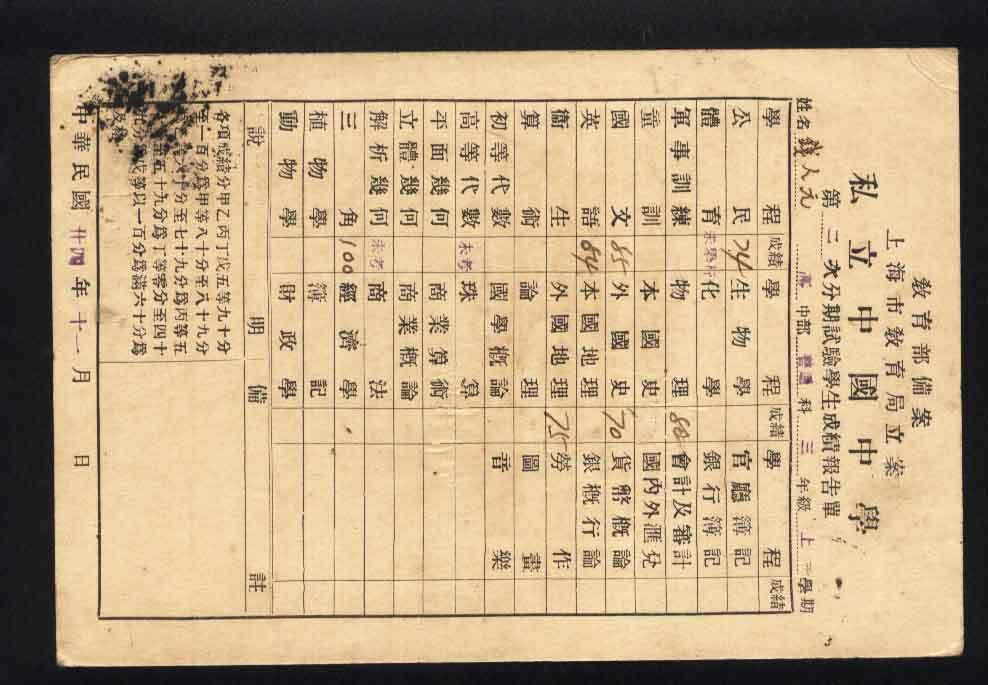 教育部備案
上海市教育局立案
私立中國中學
第二次分期試驗學生成績報告單
姓名 錢人元 高中部 普通科 三年級 上學期
學程 成績 學程 成績 學程 成績
公民 74 生物學 官廳簿記
體育 未舉行 化學 銀行簿記
軍事訓練 物理 80 會計及審計
童訓 本國史 國內外滙兌
國文 85 外國史 70 貨幣概論
英語 84 本國地理 銀概行論
衞生 外國地理 75 勞作
算術 論理 圖畫
初等代數 國學概論 音樂
高等代數 未考 珠算
平面幾何 商業算術
立體幾何 商業概論
解析幾何 未考 商法
三角 100 經濟學
植物學 簿記
動物學 財政學
說明 備註
各項成績分甲乙丙丁戊五等九十分
至一百分爲甲等八十分至八十九分
分至七十九分爲丙等五
至五十九分爲丁等零分至四十
戊等以一百分爲滿六十分爲
及格
中華民國廿四年十一月 日